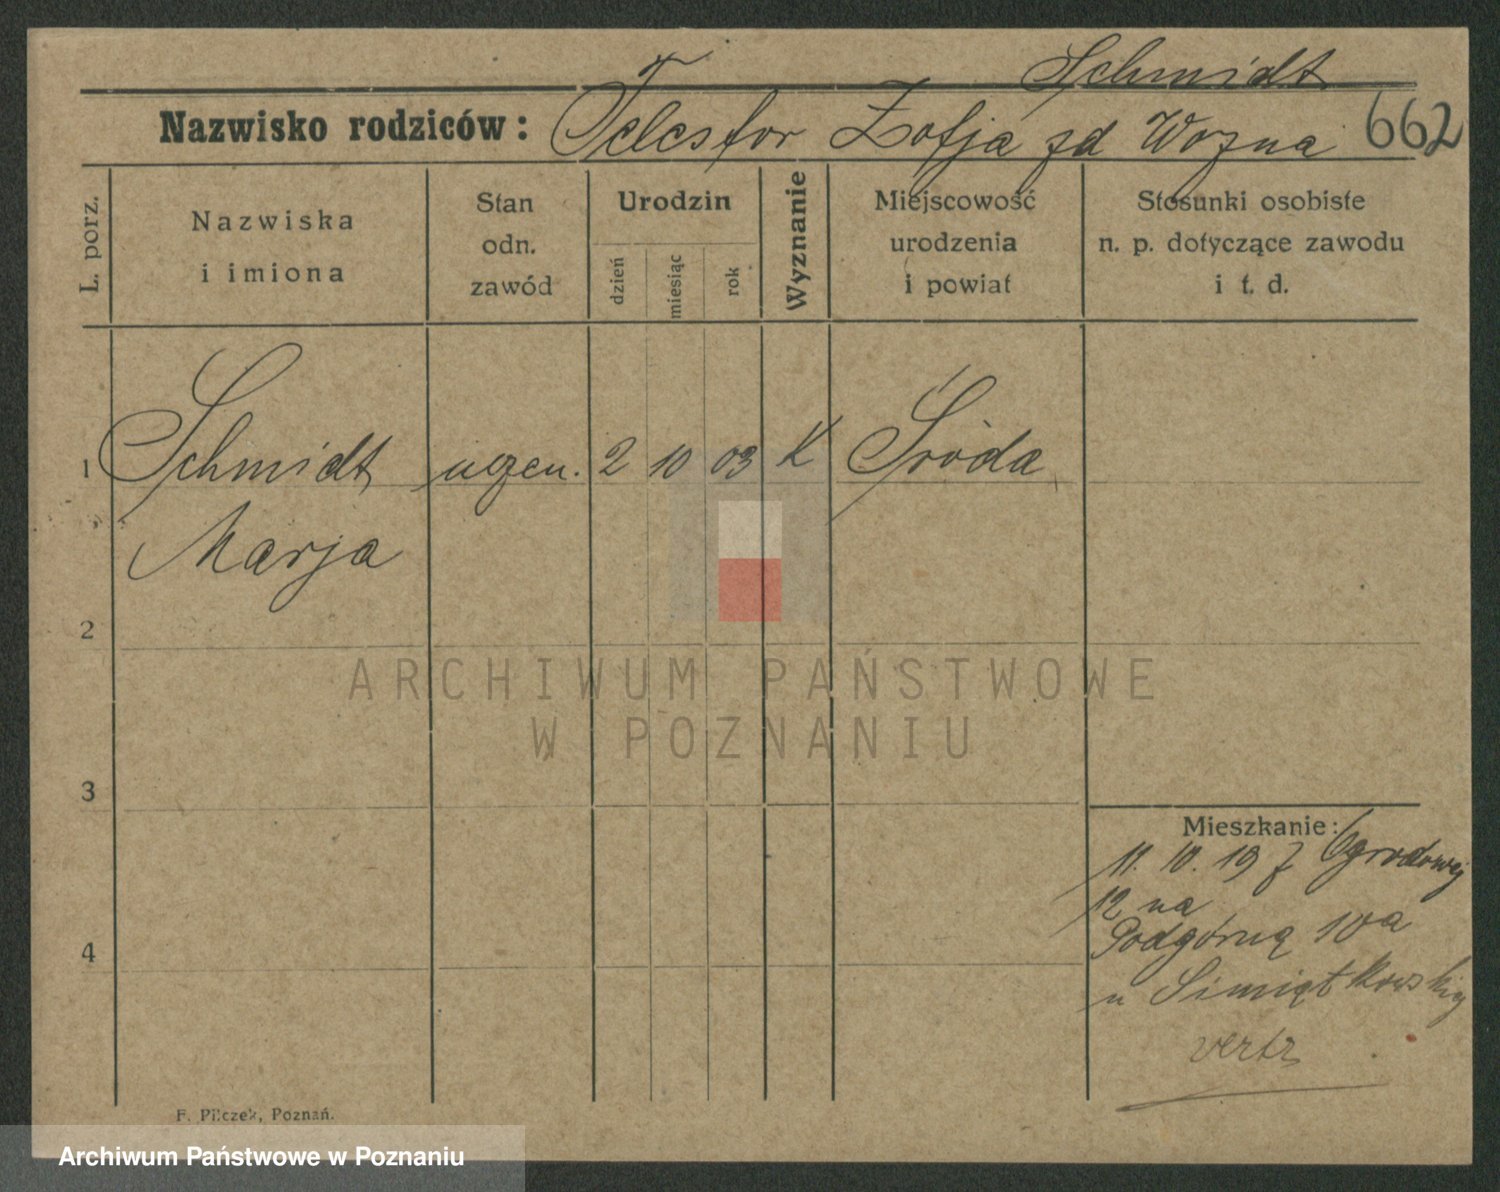 Schmidt
Nazwisko rodziców: Telesfor Zofja zd Wozna 662
L. porz.
Nazwiska i imiona
Stan odn. zawód
Urodzin
dzień
miesiąc
rok
Wyznanie
Miejscowość urodzenia i powiat
Stosunki osobiste n. p. dotyczące zawodu i t. d.
1 Schmidt uczen. 2 10 03 K Środa
Marja
2
3
Mieszkanie:
11. 10. 19 z Ogrodowej
12 na
Podgórną 10a
4
u Simiątkowskiej
F. Pilczek, Poznań.
ARCHIWUM PAŃSTWOWE
W POZNANIU
Archiwum Państwowe w Poznaniu